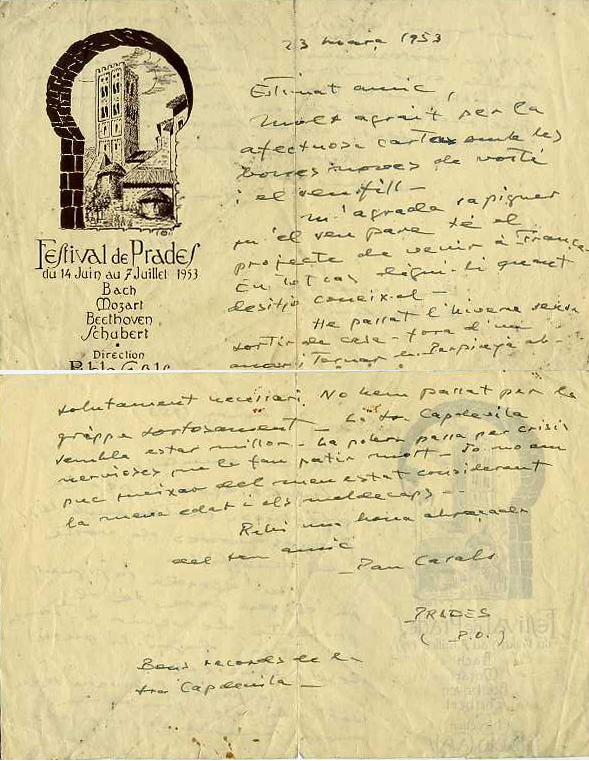 23 març 1953
Festival de Prades
du 14 Juin au 7 Juillet 1953
Bach
Mozart
Beethoven
Schubert
Direction
Pablo Casals
Estimat amic,
Molt agrait per la
afectuosa carta amb les
bones noves de vostè
i el seu fill —
M'agrada sapiguer
qu'el seu pare té el
projecte de venir à França.
En tot cas digui-li quant
desitjo coneixe-l —
He passat l'hivern sense
sortir de casa — fora d'un
anar i tornar en Perpinyà ab-
solutament necessari. No hem passat per la
grippe sortosament — La Sra Capdevila
sembla estar millor — La pobra passa per crisis
nervioses que la fan patir molt — Jo no em
puc queixar del meu estat considerant
la meva edat i els maldecaps —
Rebi una bona abraçada
del seu amic
Pau Casals
PRADES
(P.O.)
Bons records de la
Sra Capdevila —